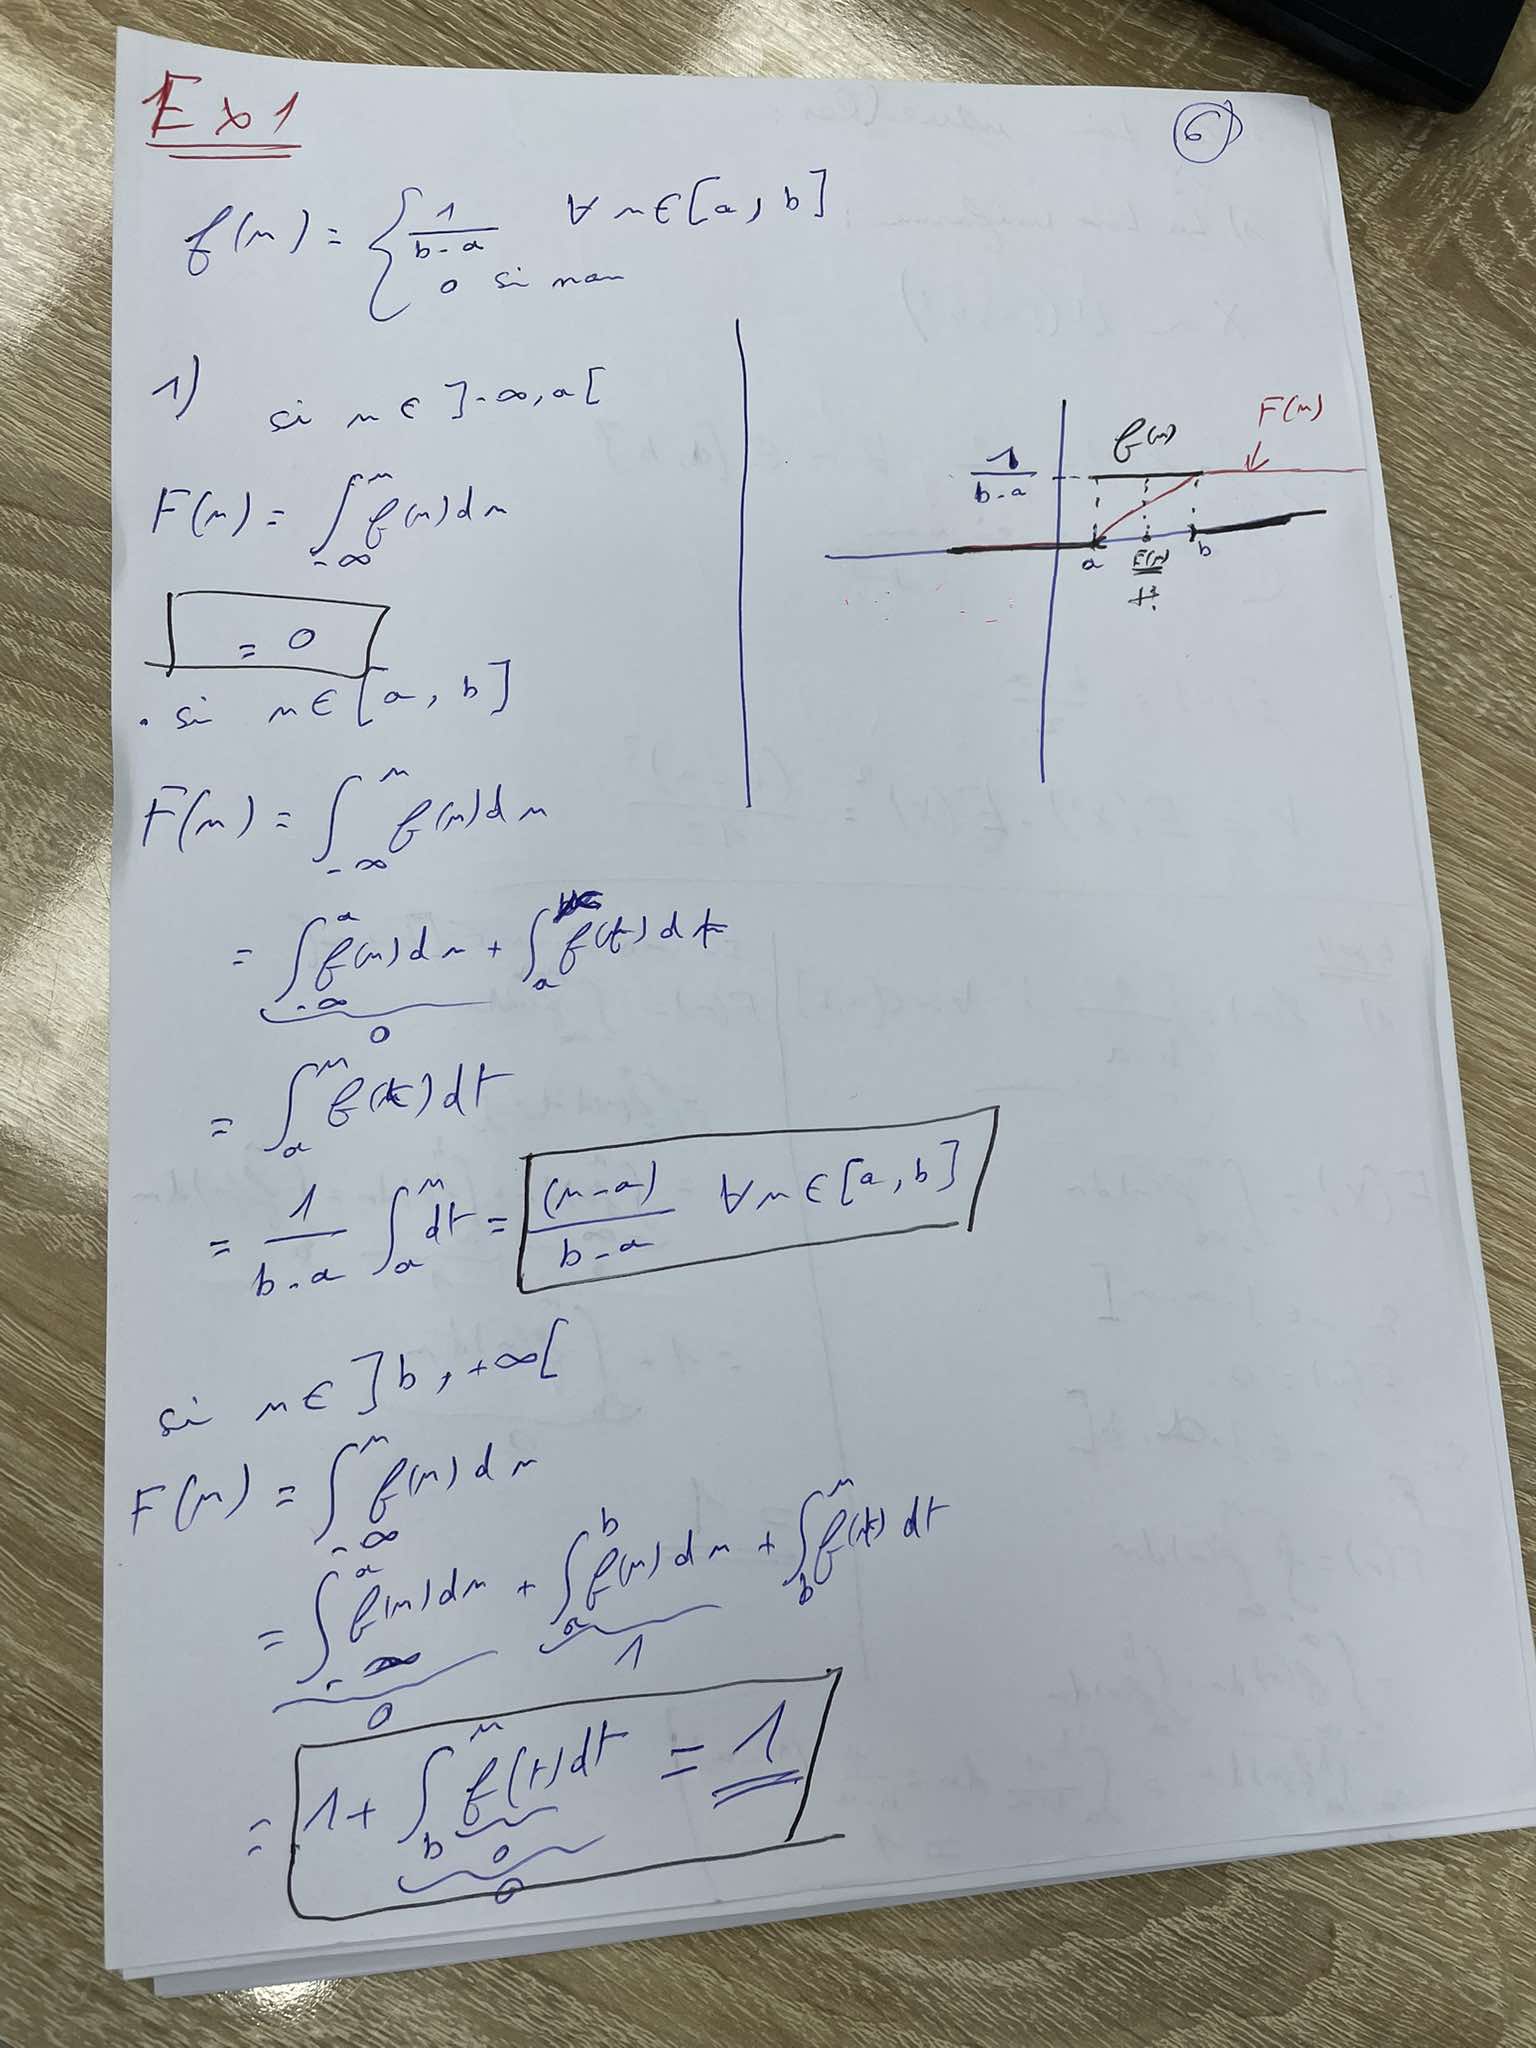 Ex 1
6)
f(x) = { 1/(b-a) ∀ x ∈ [a, b]
0 si non
1) si x ∈ ]-∞, a[
F(x) = ∫_{-∞}^{x} f(x) dx
= 0
• si x ∈ [a, b]
F(x) = ∫_{-∞}^{x} f(x) dx
= ∫_{-∞}^{a} f(x) dx + ∫_{a} f(t) dt
0
= ∫_{a}^{x} f(t) dt
= 1/(b-a) ∫_{a}^{x} dt = (x-a)/(b-a) ∀ x ∈ [a, b]
si x ∈ ]b, +∞[
F(x) = ∫_{-∞}^{x} f(x) dx
= ∫_{-∞}^{a} f(x) dx + ∫_{a}^{b} f(x) dx + ∫_{b}^{x} f(t) dt
0 1
= 1 + ∫_{b}^{x} f(t) dt = 1
0
0
F(x)
f(x)
1/(b-a)
a b